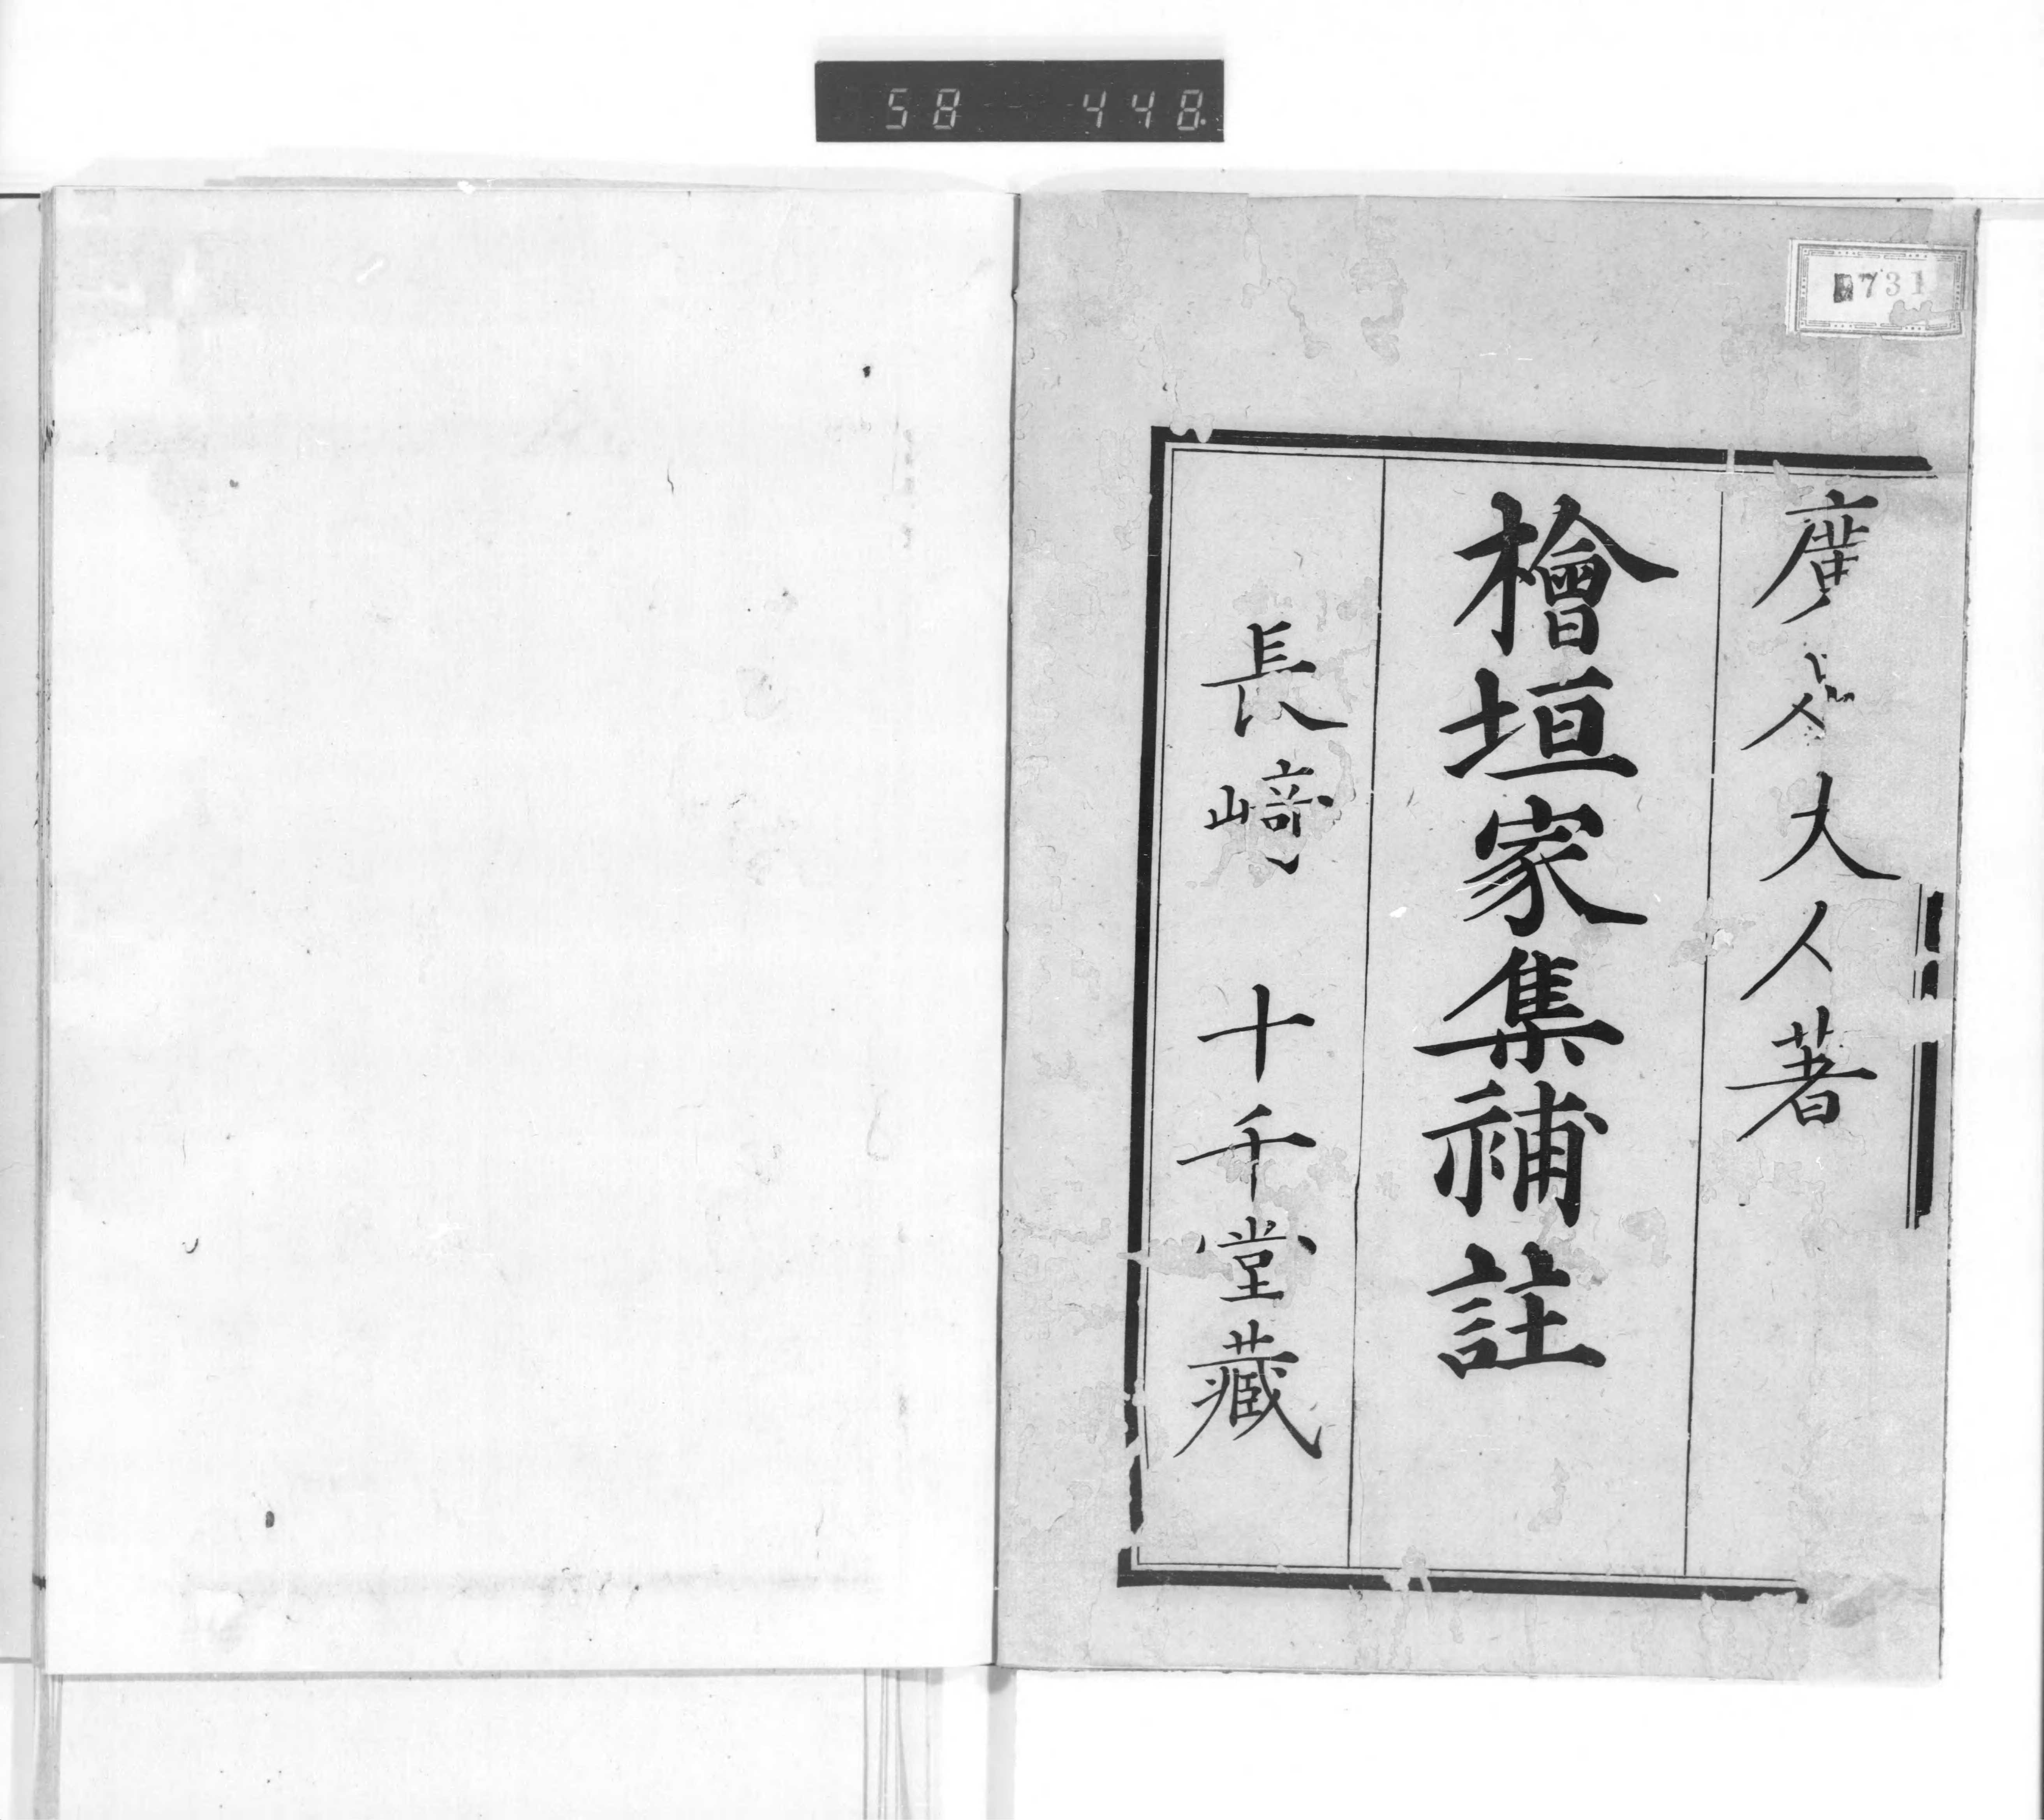 58 448
731
廣足大人著
檜垣家集補註
長﨑 十千堂藏